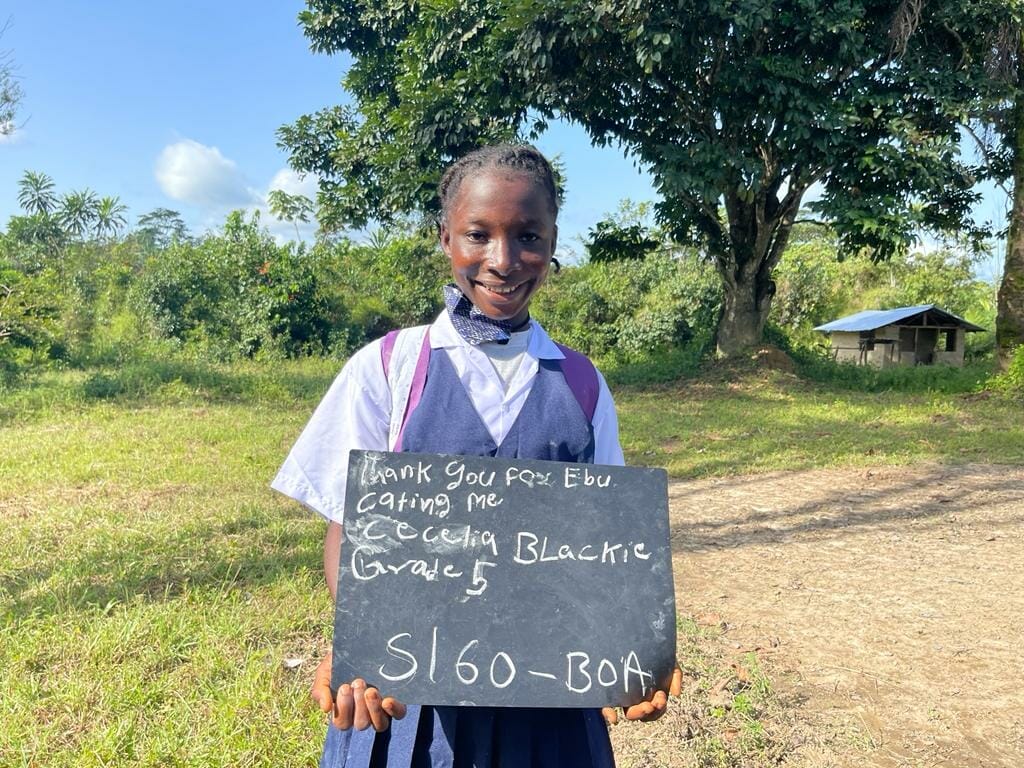 Thank You For Ebu.
cating me
Cecelia BLackie
Grade 5
S160-BOA